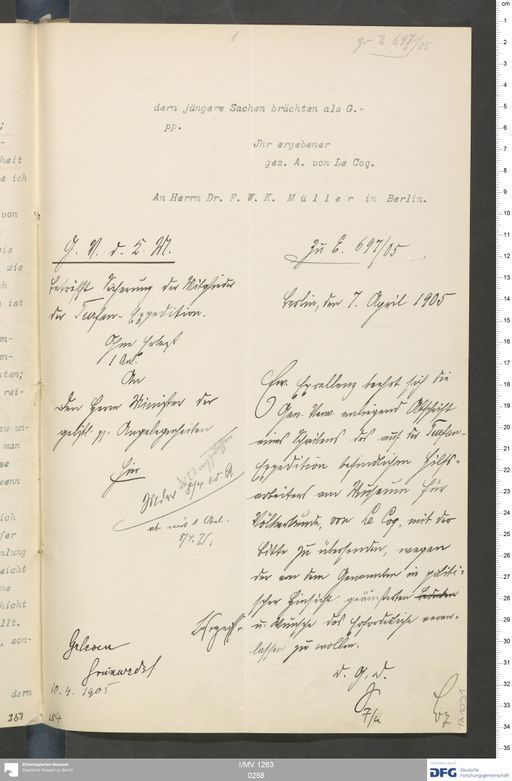 gr E 697/05
1
dern jüngere Sachen brächten als G.-
pp.
Jhr ergebener
gez. A. von Le Coq.
An Herrn Dr. F. W. K. Müller in Berlin.
G. V. d. K. M.
Zu E. 697/05
betrifft Sicherung der Mitglieder
der Turfan-Expedition.
Berlin, den 7. April 1905
Ohne
1 Anl.
An
den Herrn Minister der
geistl. pp. Angelegenheiten
Hier
ab mit 1 Anl.
Ew. Excellenz beehrt sich die
Gen. Verw. anliegend Abschrift
eines Schreibens des auf der Turfan-
Expedition befindlichen Hilfs-
arbeiters am Museum für
Völkerkunde, von Le Coq, mit der
Bitte zu übersenden, wegen
der von dem Genannten in politi-
scher Hinsicht geäußerten Bedenken
u. Wünsche das Erforderliche veran-
lassen zu wollen.
d. G. D.
7/4
Gelesen
Grünwedel
10. 4. 1905
dern
253
254
I/MV 1263
0258
Ethnologisches Museum
Staatliche Museen zu Berlin
DFG Deutsche
Forschungsgemeinschaft